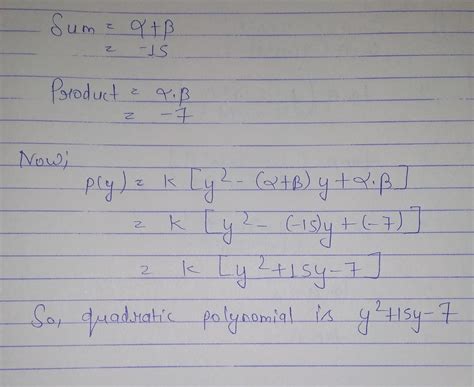 Sum = α+β
= -15
Product = α.β
= -7
Now;
p(y) = k [y² - (α+β) y + α.β]
= k [y² - (-15)y + (-7)]
= k [y² + 15y - 7]
So, quadratic polynomial is y²+15y-7